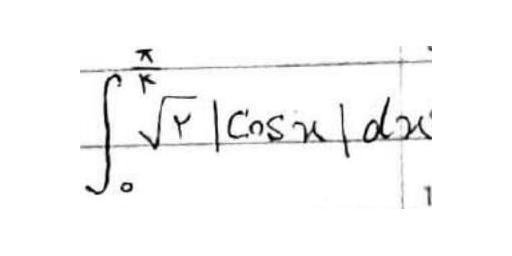 ∫₀^(π/۴) √۲ |Cos x| dx